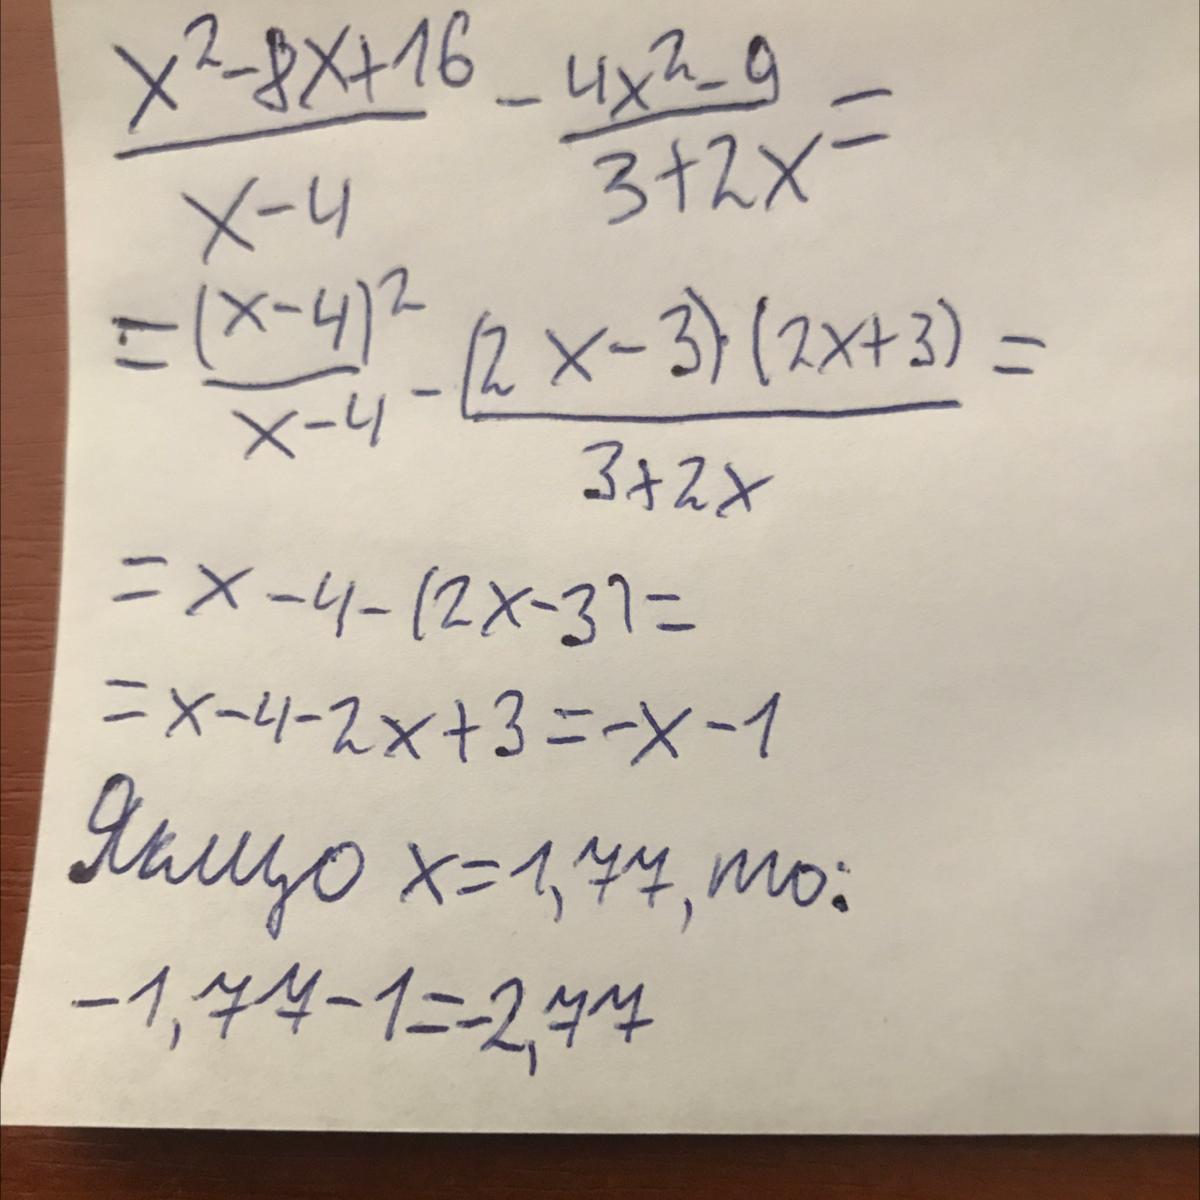 x²-8x+16 / x-4 - 4x²-9 / 3+2x =
= (x-4)² / x-4 - (2x-3)·(2x+3) / 3+2x =
= x-4-(2x-3)=
= x-4-2x+3=-x-1
Якщо x=1,77, то:
-1,77-1=-2,77